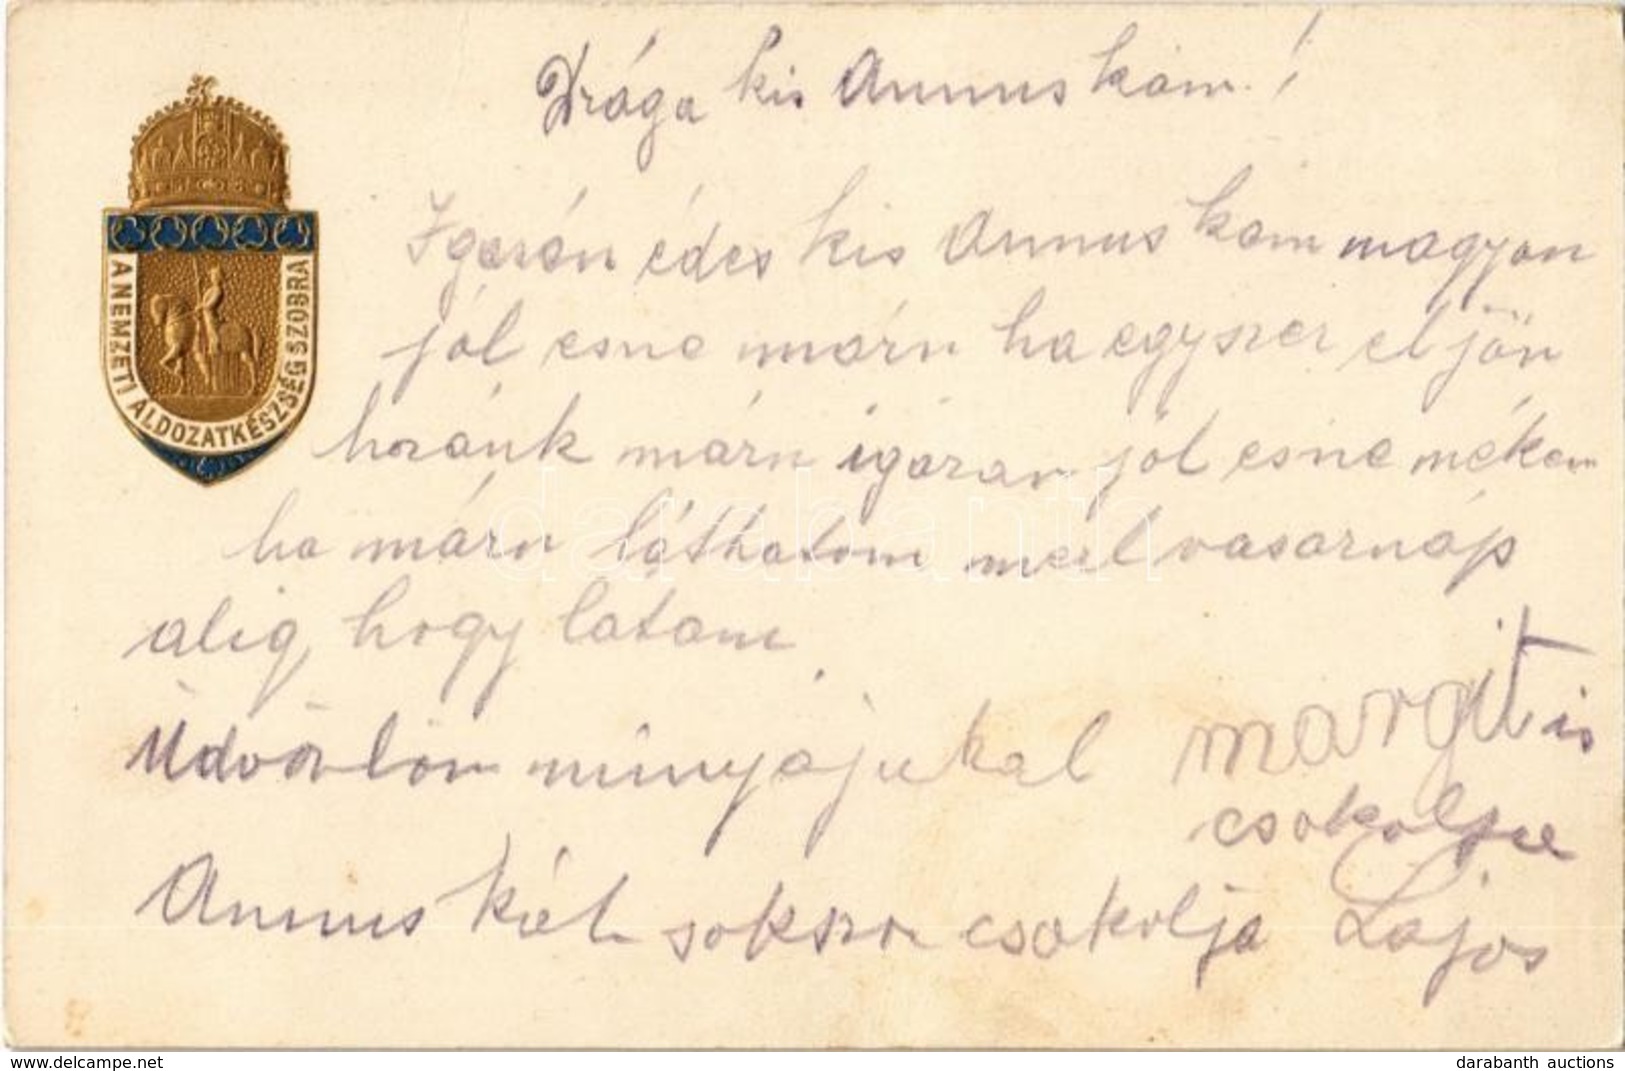 Drága kis Annuskám!
A NEMZETI ÁLDOZATKÉSZSÉG SZOBRA
Igarán édes kis Annuskam magyon
jól esne márn ha egyszer eljön
hozánk márn igaran jól esne nékem
ha márn láthatom mert vasarnáp
alig hogy latam
Üdvözlöm minyájukal margit is
csokolja
Annuskát sokszor csokolja Lajos
darabanth
www.delcampe.net
darabanth auctions